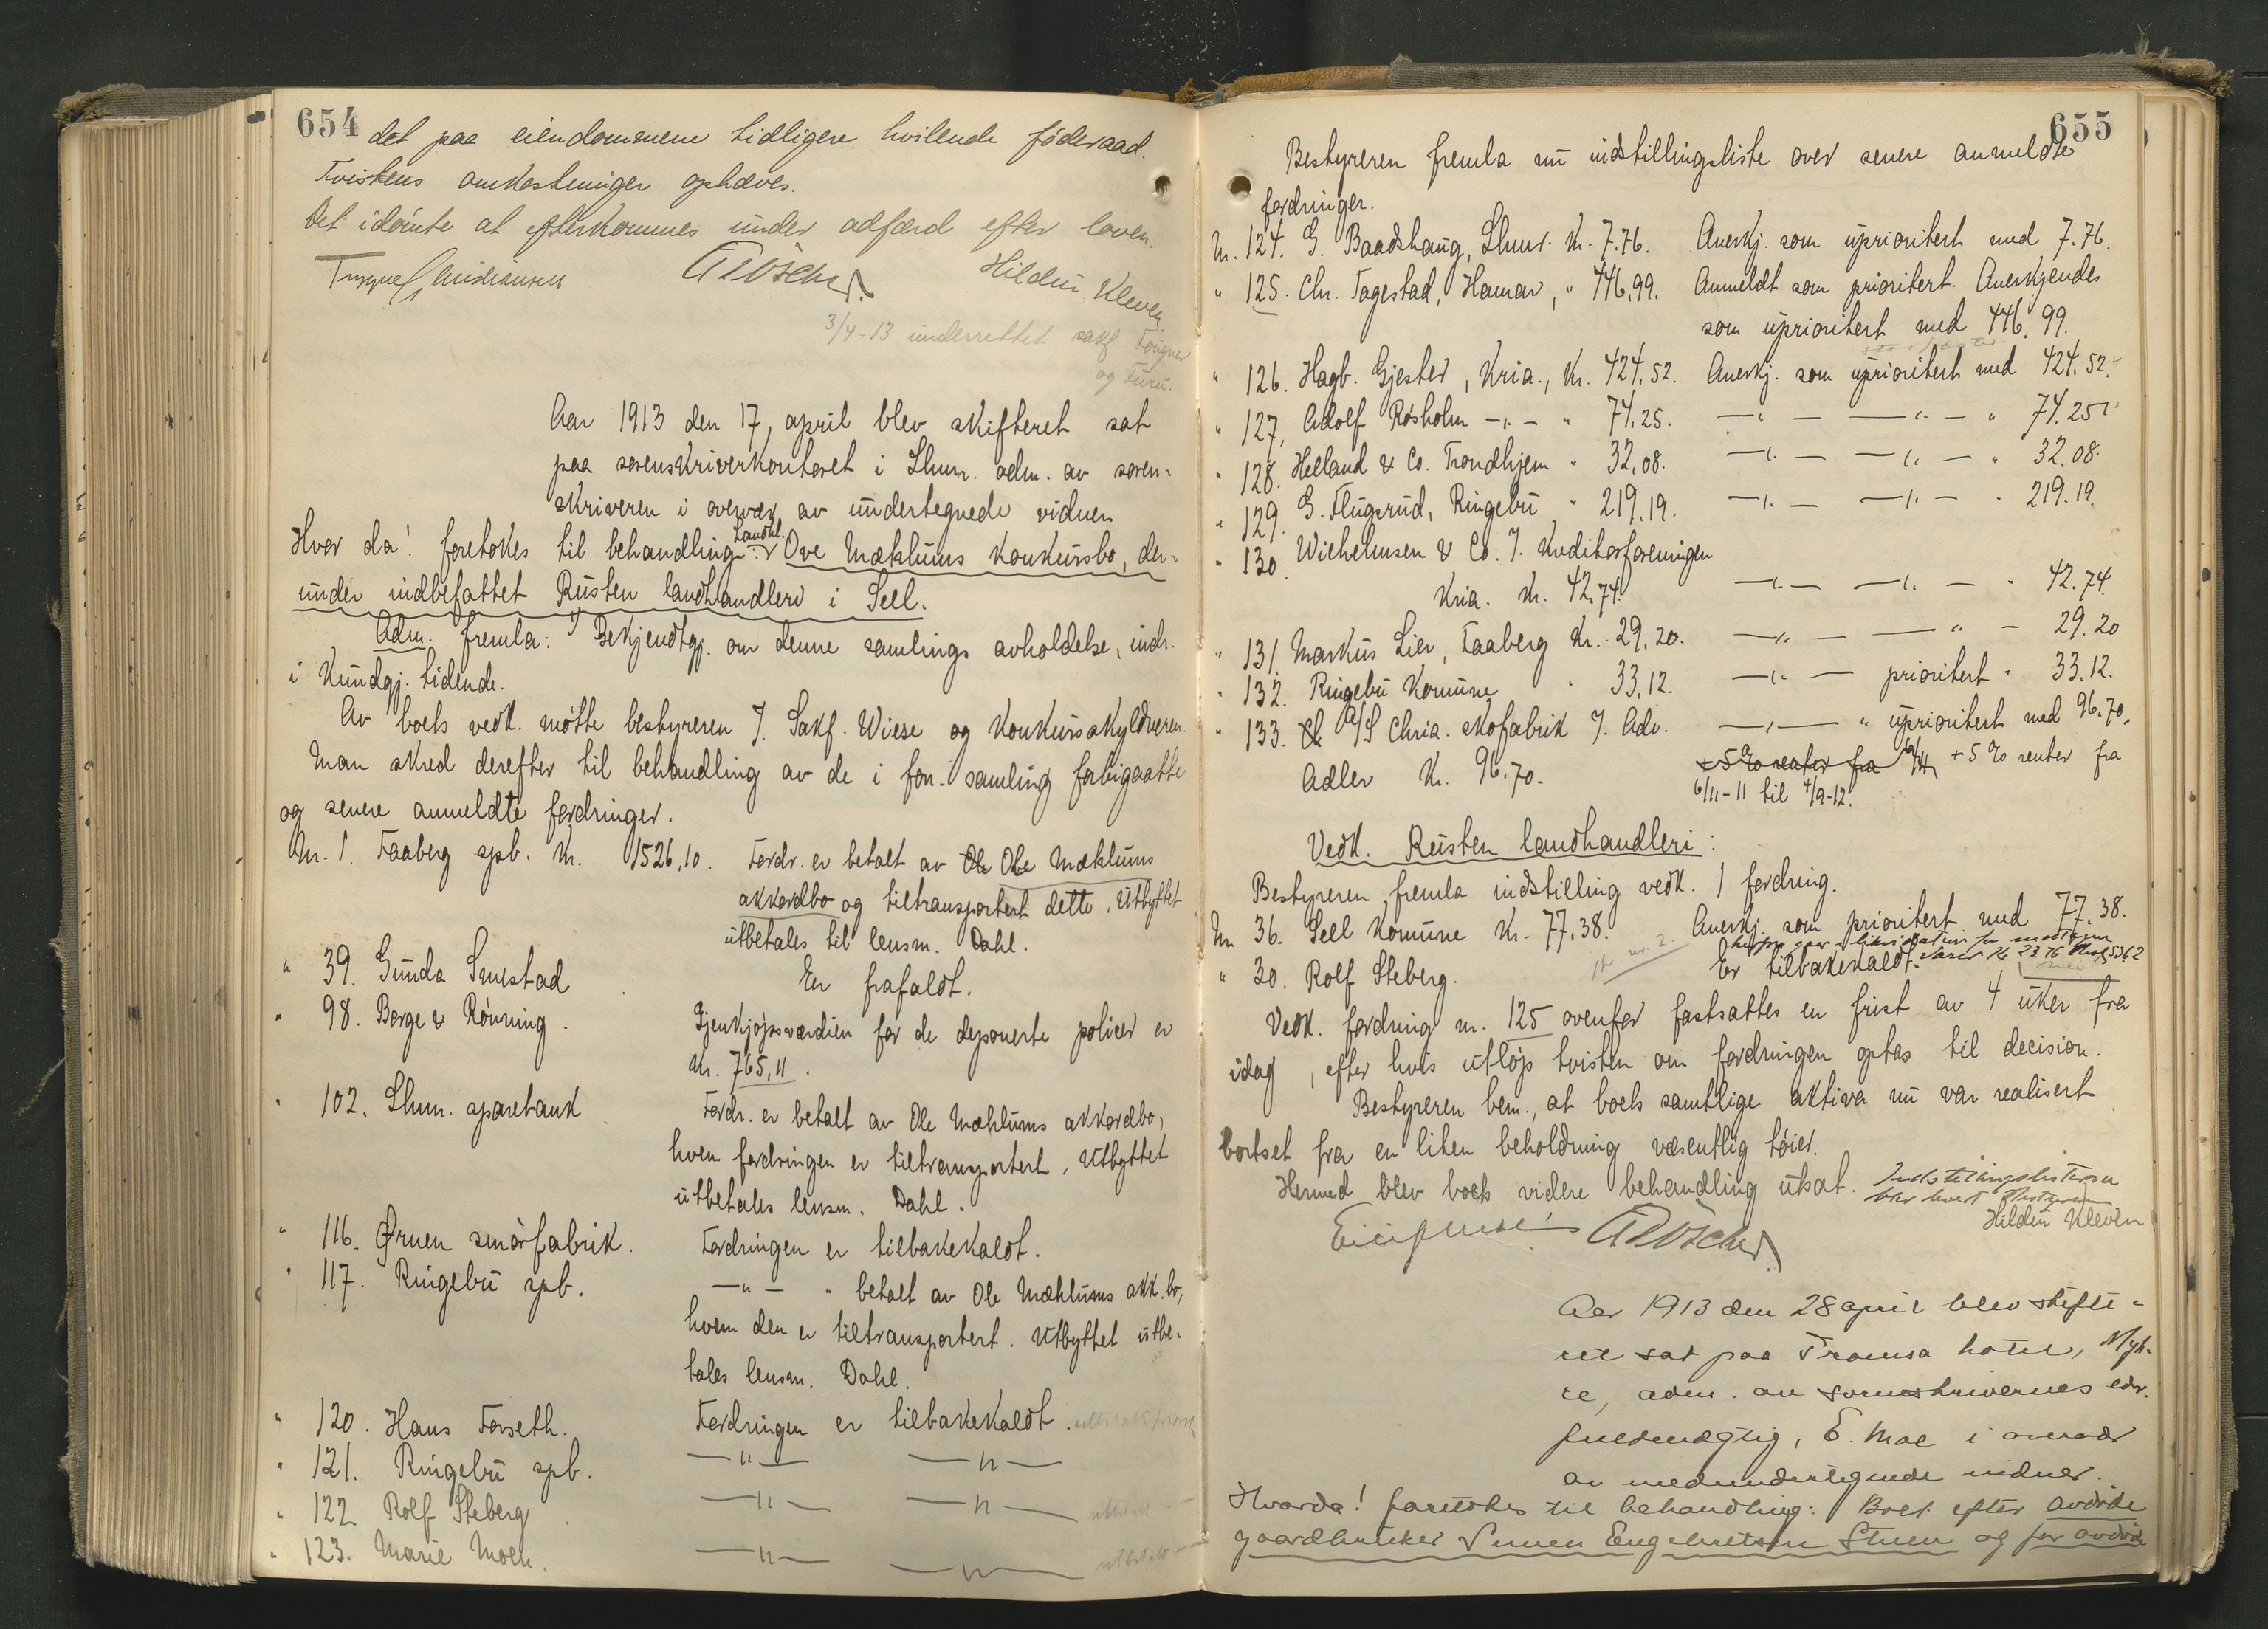 654
det paa eiendommene tidligere hvilende føderaad.
Tvistens omkostninger ophæves.
Det idømte at efterkommes under adfærd efter loven.
Hildur Kleven
3/4-13 underrettet sakf. Fougner
og Furu.
Aar 1913 den 17, april blev skifteret sat
paa sorenskriverkontoret i Lhmr. adm. av soren-
skriveren i overvær av undertegnede vidner
Hvor da! foretokes til behandling Landhl. Ove Mæhlums konkursbo, der-
under indbefattet Rusten landhandleri i Sell.
Adm. fremla: 1) Bekjendtgj. om denne samlings avholdelse, indr.
i Kundgj. tidende.
Av boets vedk. møtte bestyreren J. Sakf. Wiese og konkursskyldneren.
Man skred derefter til behandling av de i forr. samling forbigaatte
og senere anmeldte fordringer.
Nr. 1. Faaberg spb. Kr. 1526,10. Fordr. er betalt av Ole Ole Mæhlums
akkordbo og tiltransportert dette, Utbyttet
utbetales til lensm. Dahl.
" 39. Gunda Smestad Er frafaldt.
" 98. Berge & Rønning. Gjenkjøpsværdien for de deponerte policer er
Kr. 765,11.
" 102. Lhmr. sparebank Fordr. er betalt av Ole Mæhlums akkordbo,
hvem fordringen er tiltransportert, Utbyttet
utbetales lensm. Dahl.
" 116. Ørnen smørfabrik. Fordringen er tilbakekaldt.
" 117. Ringebu spb. —"— " betalt av Ole Mæhlums akk.bo,
hvem den er tiltransportert. Utbyttet utbe-
tales lensm. Dahl.
" 120. Hans Forseth. Fordringen er tilbakekaldt.
" 121. Ringebu spb. —"— —"—
" 122 Rolf Steberg —"— —"—
" 123. Marie Moen. —"— —"—
655
Bestyreren fremla nu indstillingsliste over senere anmeldte
fordringer.
Nr. 124. G. Baadshaug, Lhmr. Kr. 7.76. Anerkj. som uprioritert med 7.76.
" 125. Chr. Fagestad, Hamar, " 446.99. Anmeldt som prioritert. Anerkjendes
som uprioritert med 446.99.
" 126. Hagb. Gjester, Kria., Kr. 424.52. Anerkj. som uprioritert med 424.52.
" 127, Adolf Røsholm —"— " 74.25. —"— —"— " 74.25
" 128. Helland & Co. Trondhjem " 32.08. —"— —"— " 32.08.
" 129. G. Flugsrud, Ringebu " 219.19. —"— —"— " 219.19.
" 130. Wilhelmsen & Co. J. Kreditorforeningen
Kria. Kr. 42.74. —"— —"— " 42.74.
" 131. Markus Lier, Faaberg Kr. 29.20. —"— —"— 29.20
" 132. Ringebu Komune " 33.12. —"— prioritert " 33.12.
" 133. A/S Chria. skofabrik J. Adv. —"— " uprioritert med 96.70,
Adler Kr. 96.70. + 5 % renter fra + 5 % renter fra
6/11-11 til 4/9-12.
Vedk. Rusten landhandleri:
Bestyreren fremla indstilling vedk. 1 fordring.
Nr 36. Sell Komune Kr. 77.38. Anerkj. som prioritert med 77.38.
" 30. Rolf Steberg. Er tilbakekaldt.
Vedk. fordring nr. 125 ovenfor fastsattes en frist av 4 uker fra
idag, efter hvis utløp tvisten om fordringen optas til decision.
Bestyreren bem., at boets samtlige aktiva nu var realisert
bortset fra en liten beholdning væsentlig tøier.
Hermed blev boets videre behandling utsat. Indstillingslisterne
blev levert bestyreren
Hildur Kleven
Aar 1913 den 28 april blev skifte-
ret sat paa Tromsa hotel, Myh-
re, adm. av sorenskriverens edsv.
fuldmægtig, E. Moe i overvær
av medundertegnede vidner.
Hvorda! foretokes til behandling: Boet efter avdøde
gaardbruker Simen Engebretsen Stuen og før avdøde